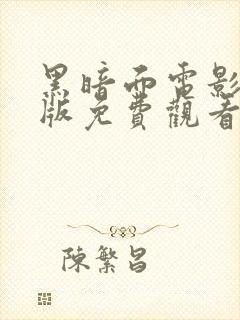 黑暗而電影
版免費觀看
陳繁昌